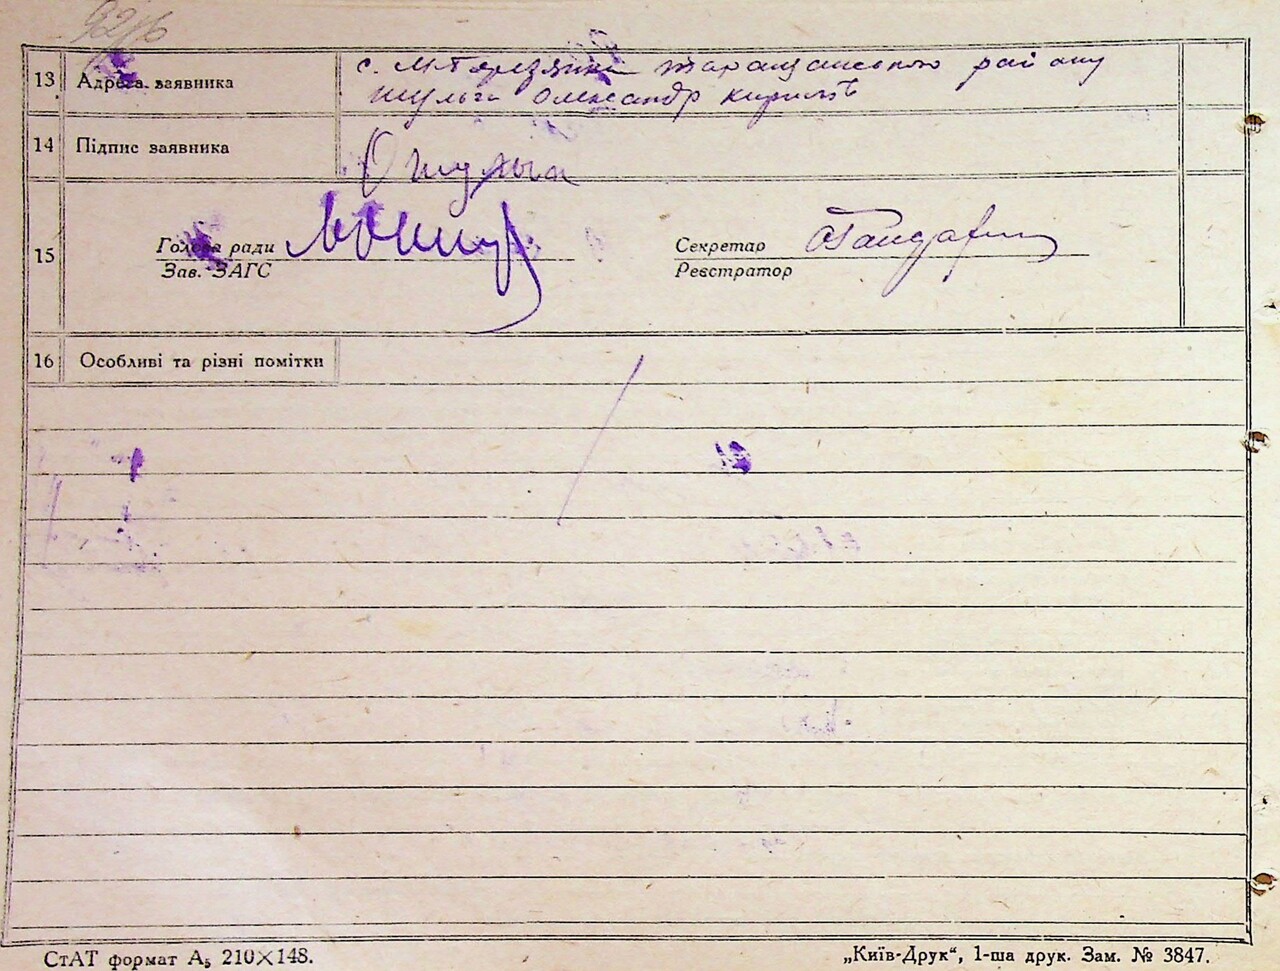 13 Адреса заявника
с. М-Березянка Таращанського району
Шульга Олександр Кирилів
14 Підпис заявника
О Шульга
15
Голова ради
Зав. ЗАГС
Секретар
Реєстратор
16 Особливі та різні помітки
СтАТ формат А5 210×148.
„Київ-Друк“, 1-ша друк. Зам. № 3847.